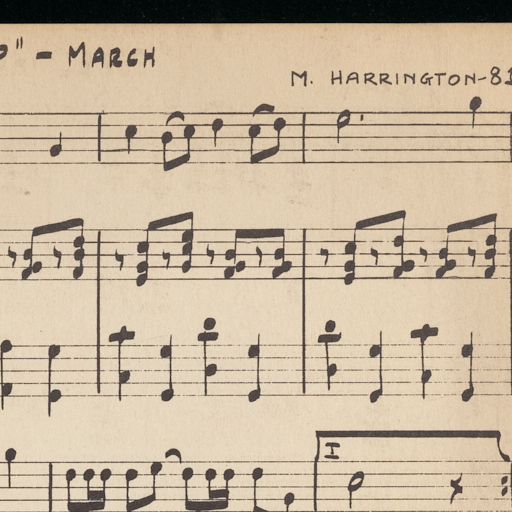 " - MARCH
M. HARRINGTON-81
I